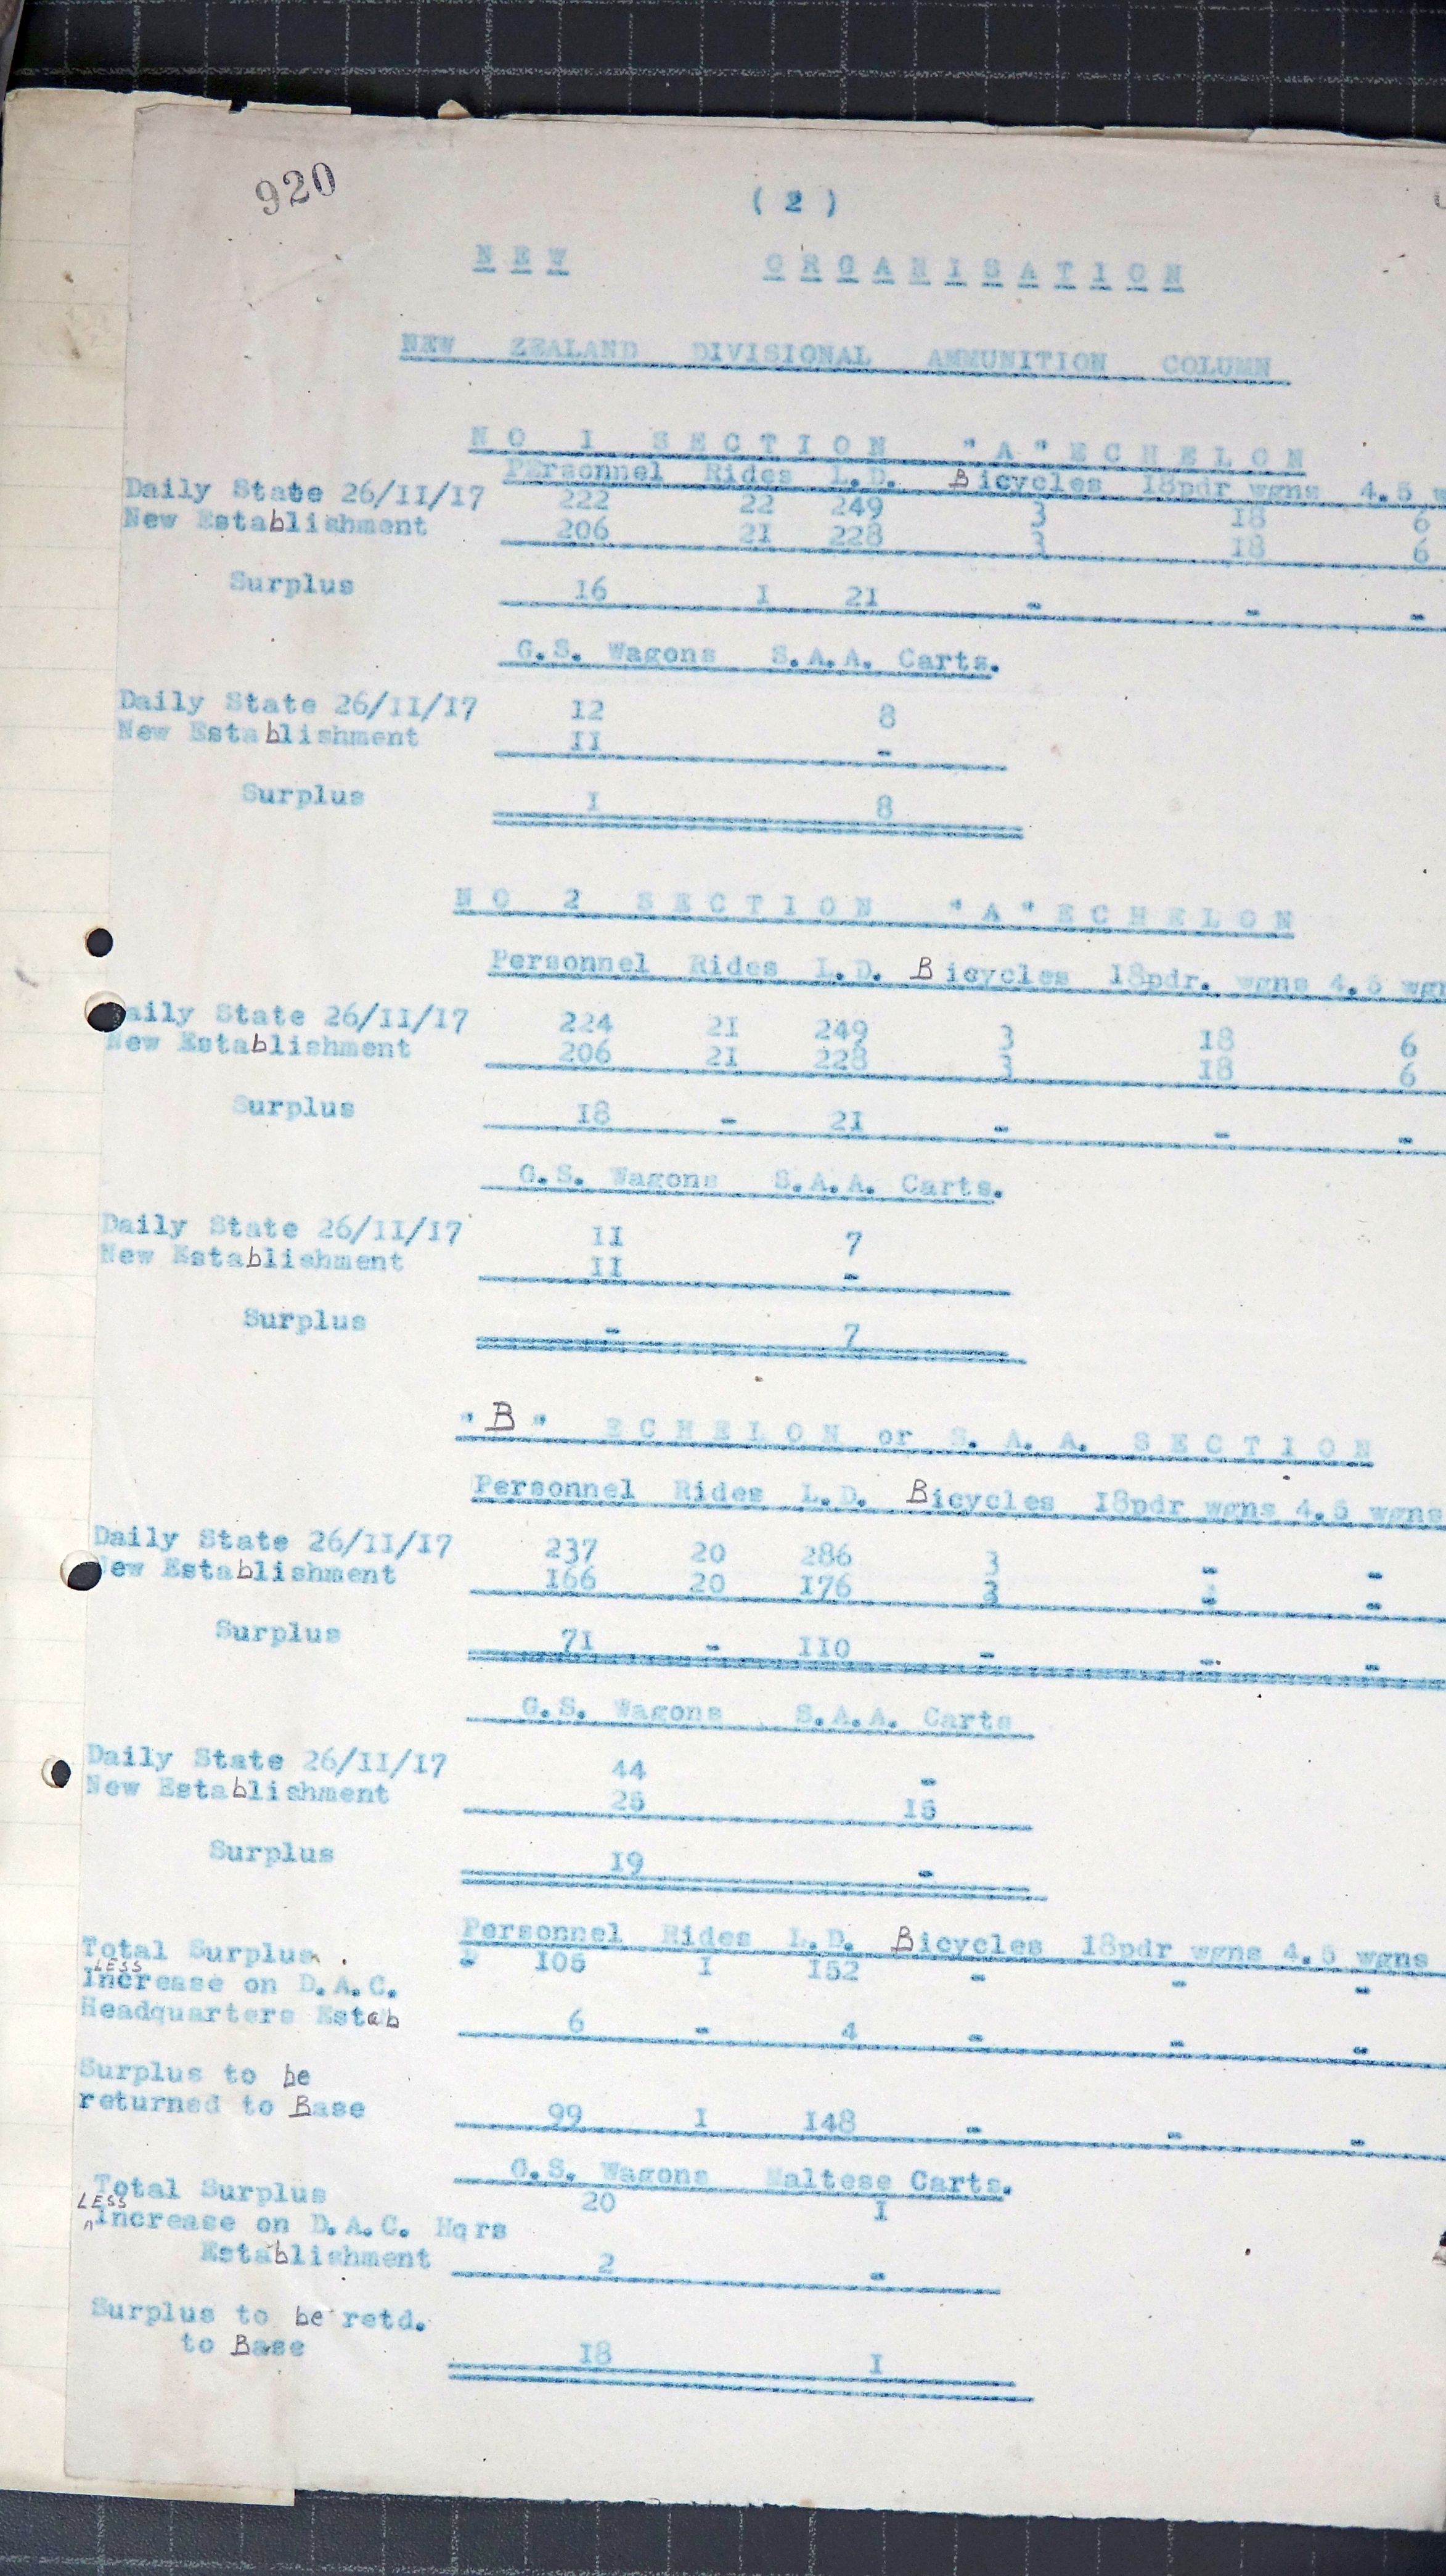 920
( 2 )
N E W   O R G A N I S A T I O N
NEW ZEALAND DIVISIONAL AMMUNITION COLUMN
N O 1 S E C T I O N "A" E C H E L O N
PErsonnel Rides L.D. Bicycles 18pdr wgns 4.5 w
Daily State 26/11/17 222 22 249 3 18 6
New Establishment 206 21 228 3 18 6
Surplus 16 1 21 - - -
G.S. Wagons S.A.A. Carts.
Daily State 26/11/17 12 8
New Establishment 11 -
Surplus 1 8
N O 2 S E C T I O N "A" E C H E L O N
Personnel Rides L.D. Bicycles 18pdr. wgns 4.5 wgn
Daily State 26/11/17 224 21 249 3 18 6
New Establishment 206 21 228 3 18 6
Surplus 18 - 21 - - -
G.S. Wagons S.A.A. Carts.
Daily State 26/11/17 11 7
New Establishment 11 -
Surplus - 7
"B" E C H E L O N or S. A. A. S E C T I O N
Personnel Rides L.D. Bicycles 18pdr wgns 4.5 wgns
Daily State 26/11/17 237 20 286 3 - -
New Establishment 166 20 176 3 - -
Surplus 71 - 110 - - -
G.S. Wagons S.A.A. Carts
Daily State 26/11/17 44 -
New Establishment 25 15
Surplus 19 -
Personnel Rides L.D. Bicycles 18pdr wgns 4.5 wgns
Total Surplus - 105 1 152 - - -
LESS
Increase on D.A.C.
Headquarters Estab 6 - 4 - - -
Surplus to be
returned to Base 99 1 148 - - -
G.S. Wagons Maltese Carts.
Total Surplus 20 1
LESS
Increase on D.A.C. Hqrs
Establishment 2 -
Surplus to be retd.
to Base 18 1